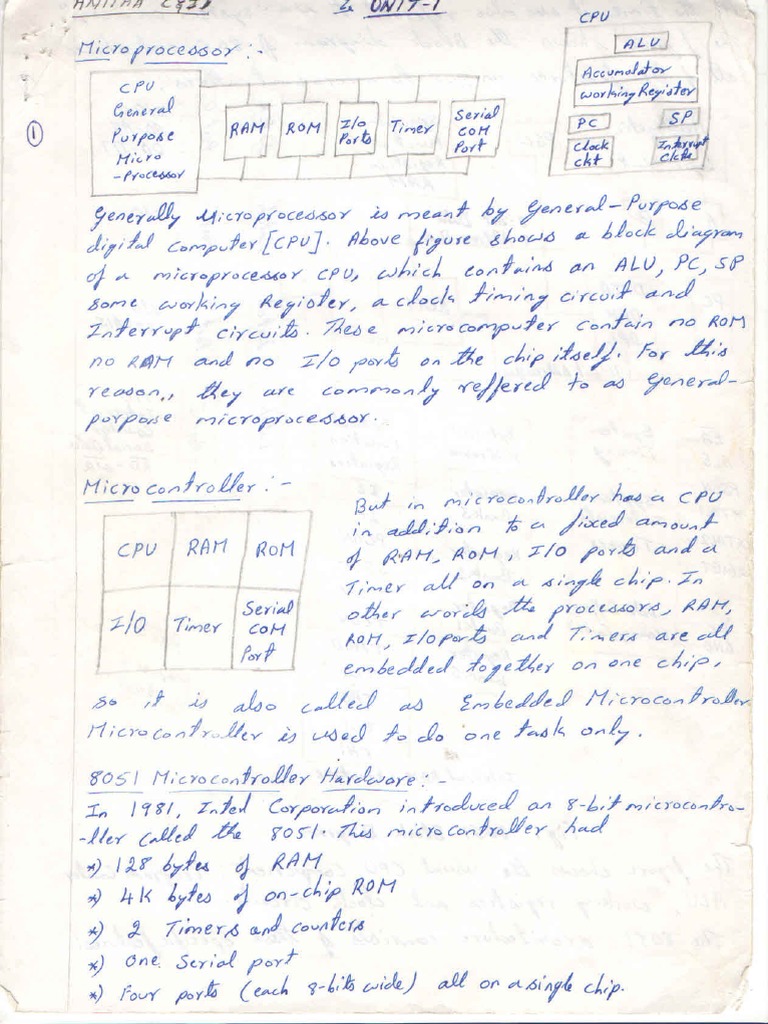 UNIT-I
CPU
ALU
Accumulator
working Register
PC
SP
Clock
ckt
Interrupt
Ckts
Microprocessor :-
CPU
General
Purpose
Micro
-Processor
RAM
ROM
I/o
Ports
Timer
Serial
COM
Port
1
Generally Microprocessor is meant by General-Purpose
digital computer [CPU]. Above figure shows a block diagram
of a microprocessor CPU, which contains an ALU, PC, SP
some working Register, a clock timing circuit and
Interrupt circuits. These microcomputer contain no ROM
no RAM and no I/O ports on the chip itself. For this
reason, they are commonly reffered to as General-
purpose microprocessor.
Microcontroller :-
CPU
RAM
ROM
I/O
Timer
Serial
COM
Port
But in microcontroller has a CPU
in addition to a fixed amount
of RAM, ROM, I/O ports and a
Timer all on a single chip. In
other words the processors, RAM,
ROM, I/O ports and Timers are all
embedded together on one chip,
so it is also called as Embedded Microcontroller
Microcontroller is used to do one task only.
8051 Microcontroller Hardware :-
In 1981, Intel Corporation introduced an 8-bit microcontro-
-ller called the 8051. This microcontroller had
*) 128 bytes of RAM
*) 4K bytes of on-chip ROM
*) 2 Timers and counters
*) One Serial port
*) Four ports (each 8-bits wide) all on a single chip.